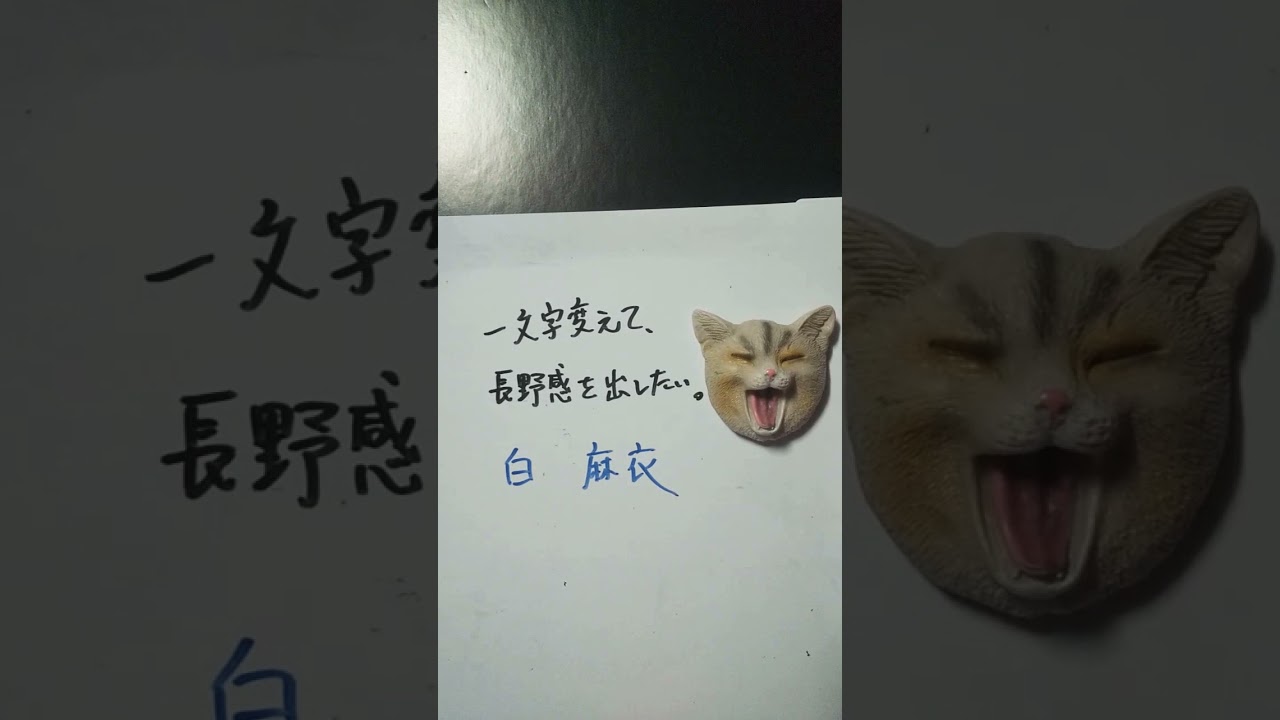 一文字変えて、
長野感を出したい。
白 麻衣